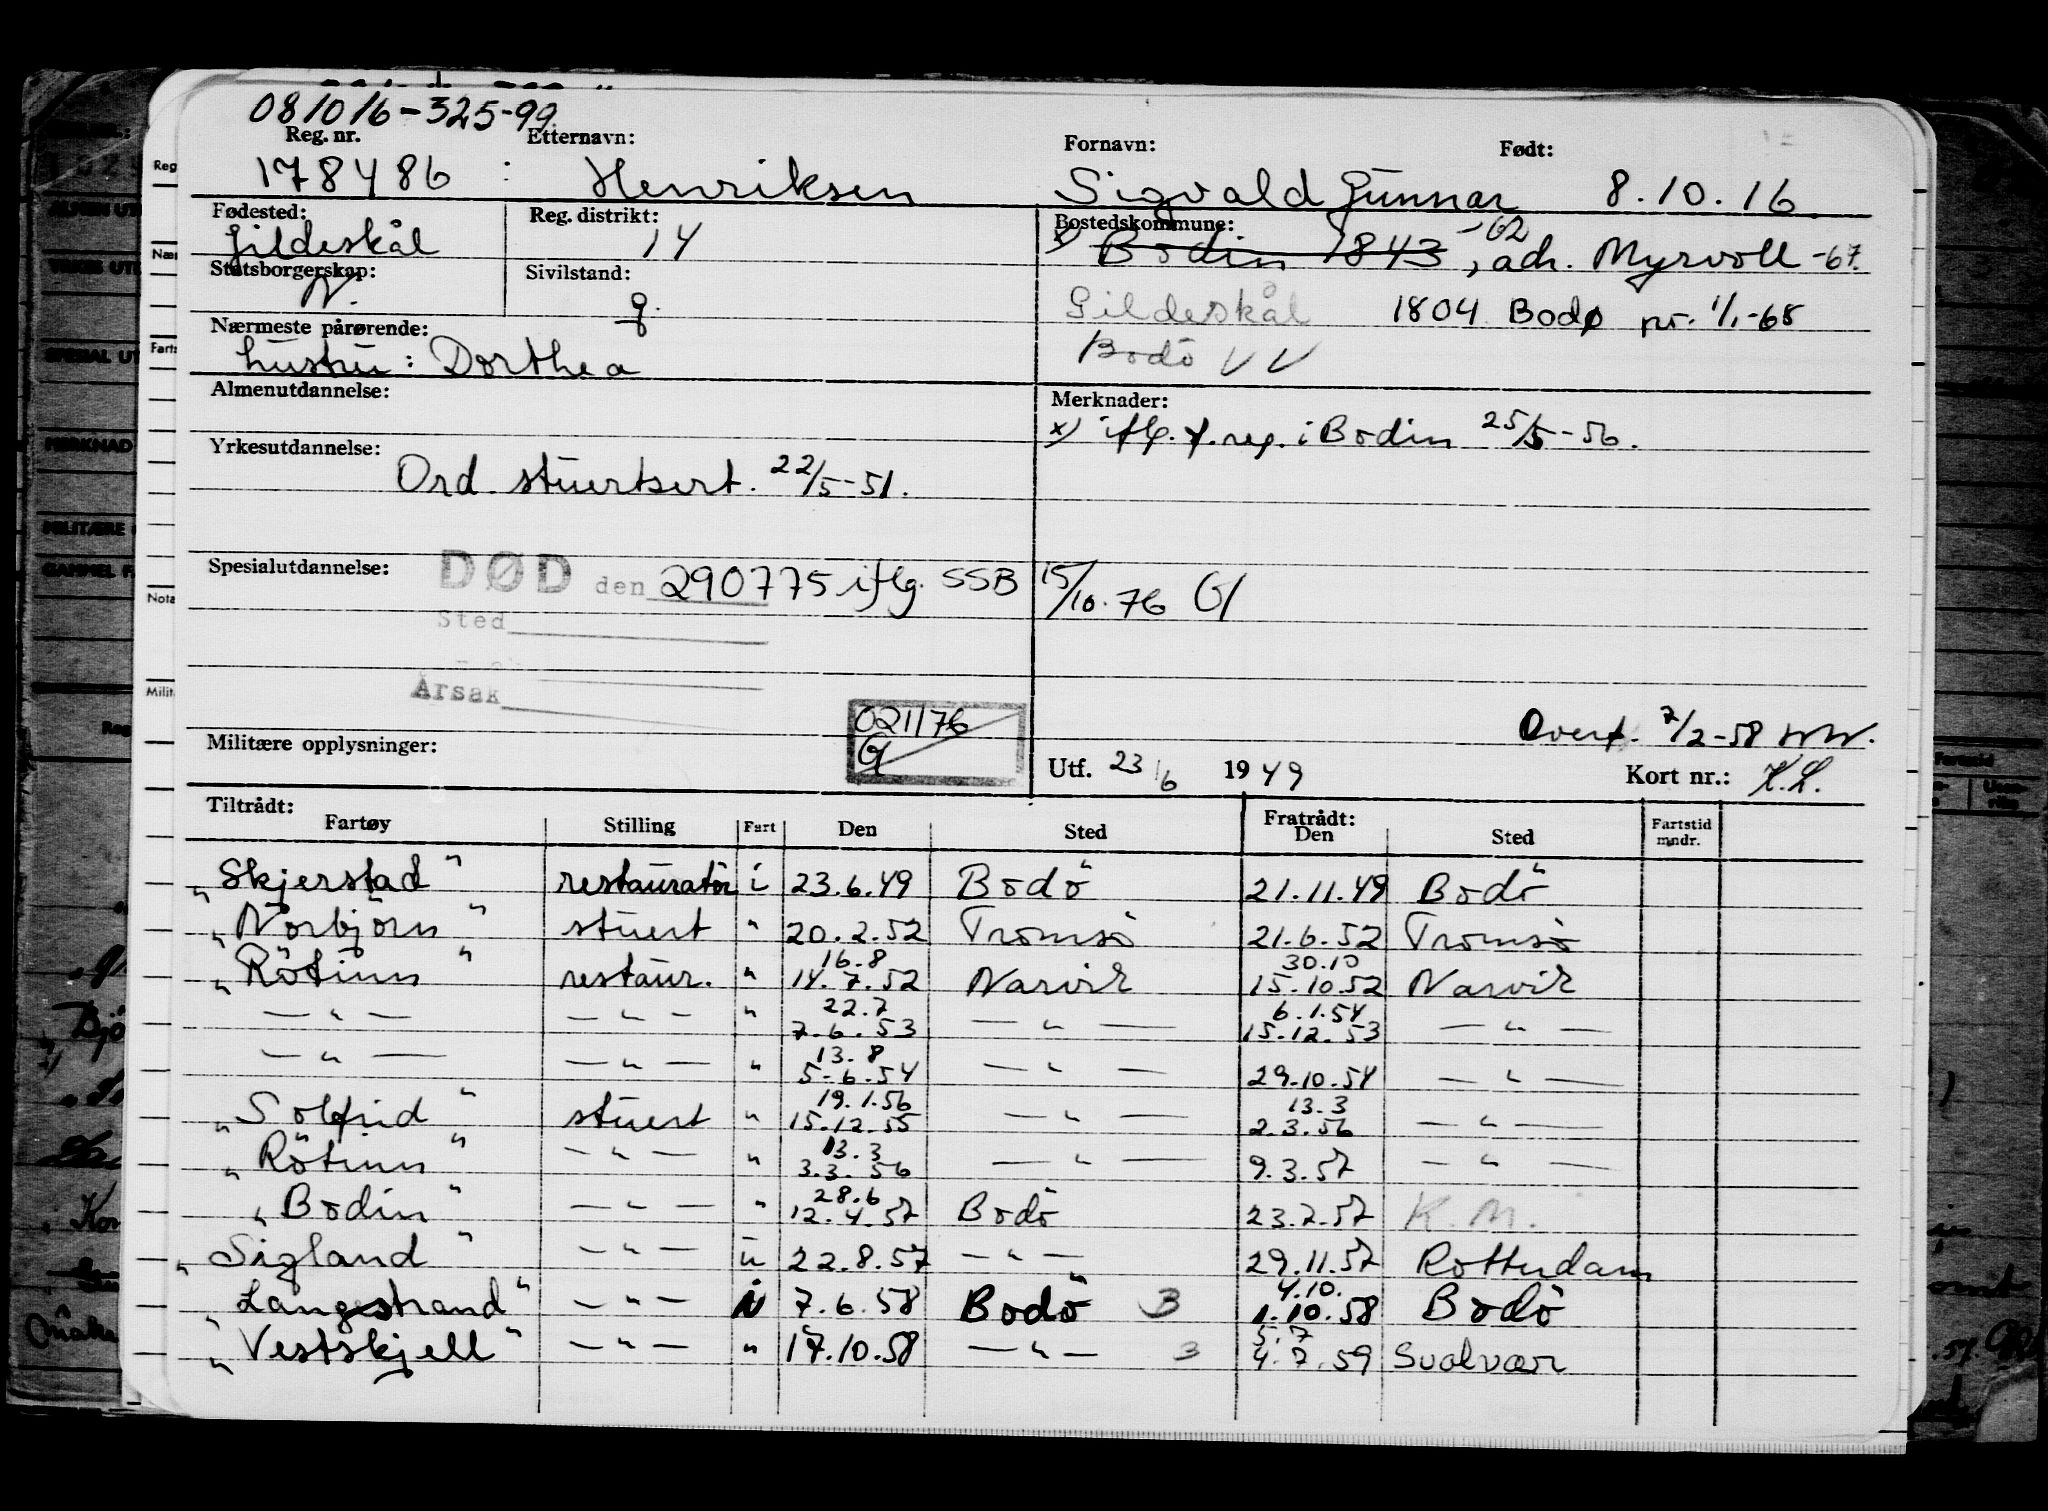 081016-325-99
Reg. nr. Etternavn: Fornavn: Født:
178486 : Henriksen Sigvald Gunnar 8.10.16
Fødested: Reg. distrikt: Bostedskommune:
Gildeskål 14 x) Bodin 1843 -62, adr. Myrvoll -67.
Statsborgerskap: Sivilstand:
N. g. Gildeskål 1804 Bodø pr. 1/1-68
Nærmeste pårørende: Bodö VV
hustru: Dorthea
Almenutdannelse: Merknader:
x) iflg. f.reg. i Bodin 25/5-56.
Yrkesutdannelse:
Ord. stuertsert. 22/5-51.
Spesialutdannelse: DØD den 290775 iflg. SSB 15/10.76 G
Sted
Årsak
021176
G
Overf. 7/2-58 WW.
Militære opplysninger: Utf. 23/6 1949 Kort nr.: K.L.
Tiltrådt: Fratrådt:
Fartøy Stilling Fart Den Sted Den Sted Fartstid mndr.
"Skjerstad" restauratør i 23.6.49 Bodö 21.11.49 Bodö
"Norbjörn" stuert " 20.2.52 Tromsö 21.6.52 Tromsö
16.8 30.10
"Rötinn" restaur. " 14.7.52 Narvik 15.10.52 Narvik
22.7 6.1.54
— " — — " — " 7.6.53 — " — 15.12.53 — " —
13.8
— " — — " — " 5-6.54 — " — 29.10.54 — " —
19.1.56 13.3
"Solfrid" stuert " 15.12.55 — " — 2.3.56 — " —
13.3
"Rötinn" — " — " 3.3.56 — " — 9.3.57 — " —
28.6
"Bodin" — " — " 12.4.57 Bodö 23.7.57 K.M.
"Sigland" — " — u 22.8.57 — " — 29.11.57 Rotterdam
4.10.
"Langstrand" — " — i 7.6.58 Bodö 3 1.10.58 Bodö
5.7
"Vestskjell" — " — " 17.10.58 — " — 3 4.7.59 Svolvær